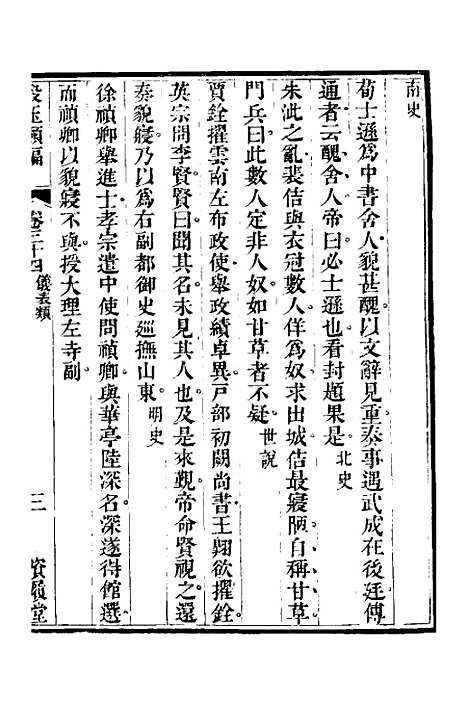 南史
荀士遜爲中書舍人貌甚醜以文辭見重奏事遇武成在後廷傳
通者云醜舍人帝曰必士遜也看封題果是。北史
朱泚之亂裴佶與衣冠數人佯爲奴求出城佶最寢陋自稱甘草
門兵曰此數人定非人奴如甘草者不疑。世說
賈銓擢雲南左布政使舉政績卓異戸部初闕尚書王翺欲擢銓
英宗問李賢賢曰聞其名未見其人也及是來覲帝命賢視之還
奏貌寢乃以為右副都御史巡撫山東。明史
徐禎卿舉進士孝宗遣中使問禎卿與華亭陸深名深遂得館選
而禎卿以貌寢不與授大理左寺副
類編 卷三十四 儀表類 三 資履堂